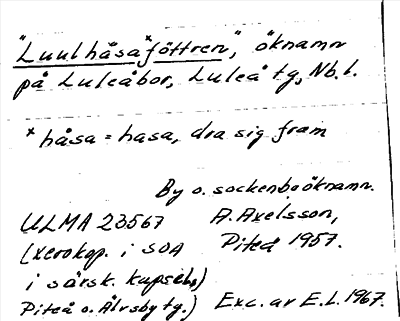 "Luulhåsa*föttren", öknamn
på Luleåbor, Luleå tg, Nb. l.
* håsa = hasa, dra sig fram
By o. sockenboöknamn.
ULMA 23567 A. Axelsson,
(xerokop. i SOA Piteå 1957.
i särsk. kapsel,)
Piteå o. Älvsby tg.) Exc. av E. L. 1967.